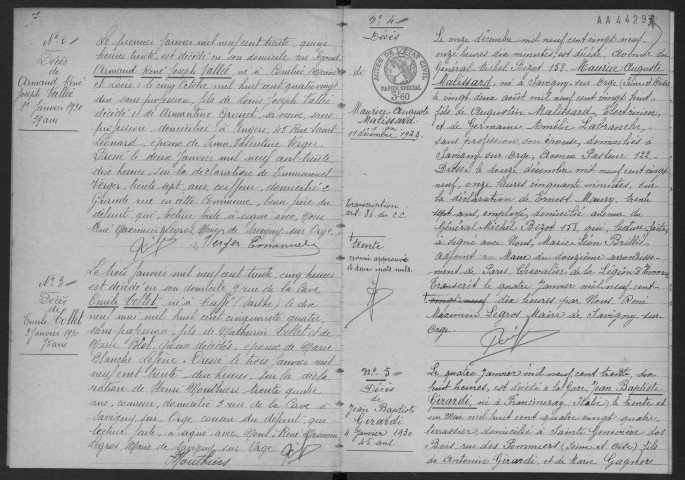 N° 2
Décès
de
Armand René
Joseph Vallée
1er Janvier 1930
39 ans
Le premier Janvier mil neuf cent trente, quinze
heures trente, est décédé en son domicile rue
Armand René Joseph Vallée, né à (Maine
et Loire) le cinq Octobre mil huit cent quatre vingt
dix, sans profession, fils de Louis Joseph Vallée
décédé et de Armantine sa veuve, sans
profession, domiciliée à Angers, 45 rue Saint
Léonard, époux de Valentine Verger.
Dressé le deux Janvier mil neuf cent trente
dix heures, sur la déclaration de Emmanuel
Verger, trente sept ans, coiffeur, domicilié 2
Girault rue en cette Commune, beau frère du
défunt, qui, lecture faite a signé avec Nous
René Maximin Legros, Maire de Savigny sur Orge.
Verger Emmanuel
N° 3
Décès
de
Emile Collet
3 Janvier 1930
75 ans
Le trois Janvier mil neuf cent trente, cinq heures
est décédé en son domicile 9 rue de la Cave
Emile Collet, né à (Sarthe) le dix
neuf mai mil huit cent cinquante quatre,
sans profession, fils de Mathurin Collet et de
Marie Blot, époux décédés, époux de Marie
Blanche . Dressé le trois Janvier mil
neuf cent trente, dix heures, sur la décla
ration de Henri Mouthiers, trente quatre
ans, domicilié 9 rue de la Cave à
Savigny sur Orge, cousin du défunt, qui
lecture faite, a signé avec Nous, René Maximin
Legros, Maire de Savigny sur Orge
Mouthiers
N° 4
Décès
de
Maurice Auguste
Malissard
11 décembre 1929
Transcription
art. 80 du C.C.
trente
renvoi approuvé
et deux mots nuls
ACTES DE L'ETAT CIVIL
PAPIER SPECIAL
0.60
AA4429
Le onze décembre mil neuf cent vingt neuf,
onze heures dix minutes, est décédé, avenue du
Général Michel Bizot 158, Maurice Auguste
Malissard, né à Savigny sur Orge (Seine et Oise)
le vingt deux août mil neuf cent vingt huit,
fils de Augustin Malissard, Electricien,
et de Germaine Amélie Labranche,
sans profession, son épouse, domiciliés à
Savigny sur Orge, Avenue Pasteur 122.
Dressé le douze décembre mil neuf cent vingt
neuf, onze heures cinquante minutes, sur
la déclaration de Ernest Maury, trente
sept ans, employé, domicilié avenue du
Général Michel Bizot 158, qui, lecture faite,
a signé avec Nous, Marie Léon ,
adjoint au Maire du douzième arrondisse-
ment de Paris, Chevalier de la Légion d'honneur.
Transcrit le quatre Janvier mil neuf cent
vingt neuf, dix heures par Nous, René
Maximin Legros Maire de Savigny sur
Orge.
N° 5
Décès
de
Jean Baptiste
Girardi
4 Janvier 1930
45 ans.
Le quatre Janvier mil neuf cent trente, dix
huit heures, est décédé à la Gare, Jean Baptiste
Girardi, né à (Italie) le trente et
un Mai mil huit cent quatre vingt quatre,
terrassier, domicilié à Sainte Geneviève des
Bois, rue des Pommiers (Seine et Oise) fils
de Antonin Girardi, et de Marie Gagnere